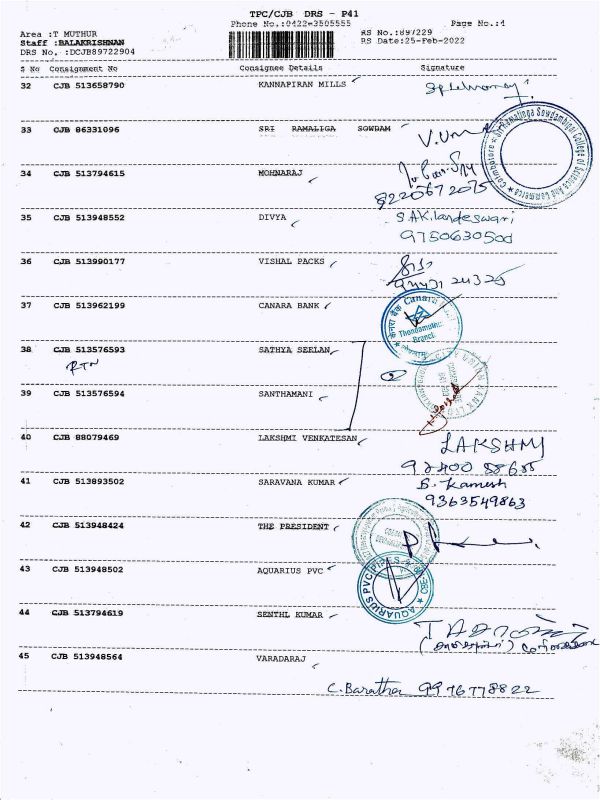 TPC/CJB DRS - P41
Phone No.:0422-3505555
Page No.:4
Area :T MUTHUR
Staff :BALAKRISHNAN
DRS No. :DCJB89722904
RS No.:897229
RS Date:25-Feb-2022
S No Consignment No Consignee Details Signature
32 CJB 513658790 KANNAPIRAN MILLS
33 CJB 86331096 SRI RAMALIGA SOWDAM
34 CJB 513794615 MOHNARAJ
8220672075
35 CJB 513948552 DIVYA S.AKilandeswari
9750630500
36 CJB 513990177 VISHAL PACKS
37 CJB 513962199 CANARA BANK
केनरा बैंक Canara
Thondamuthur
Branch
38 CJB 513576593 SATHYA SEELAN
RTN
2
39 CJB 513576594 SANTHAMANI
40 CJB 88079469 LAKSHMI VENKATESAN LAKSHMJ
41 CJB 513893502 SARAVANA KUMAR S. Kamesh
9363549863
42 CJB 513948424 THE PRESIDENT
43 CJB 513948502 AQUARIUS PVC
AQUARIUS PVC PIPES CBE
44 CJB 513794619 SENTHL KUMAR
45 CJB 513948564 VARADARAJ
C. Baratha 9976778822